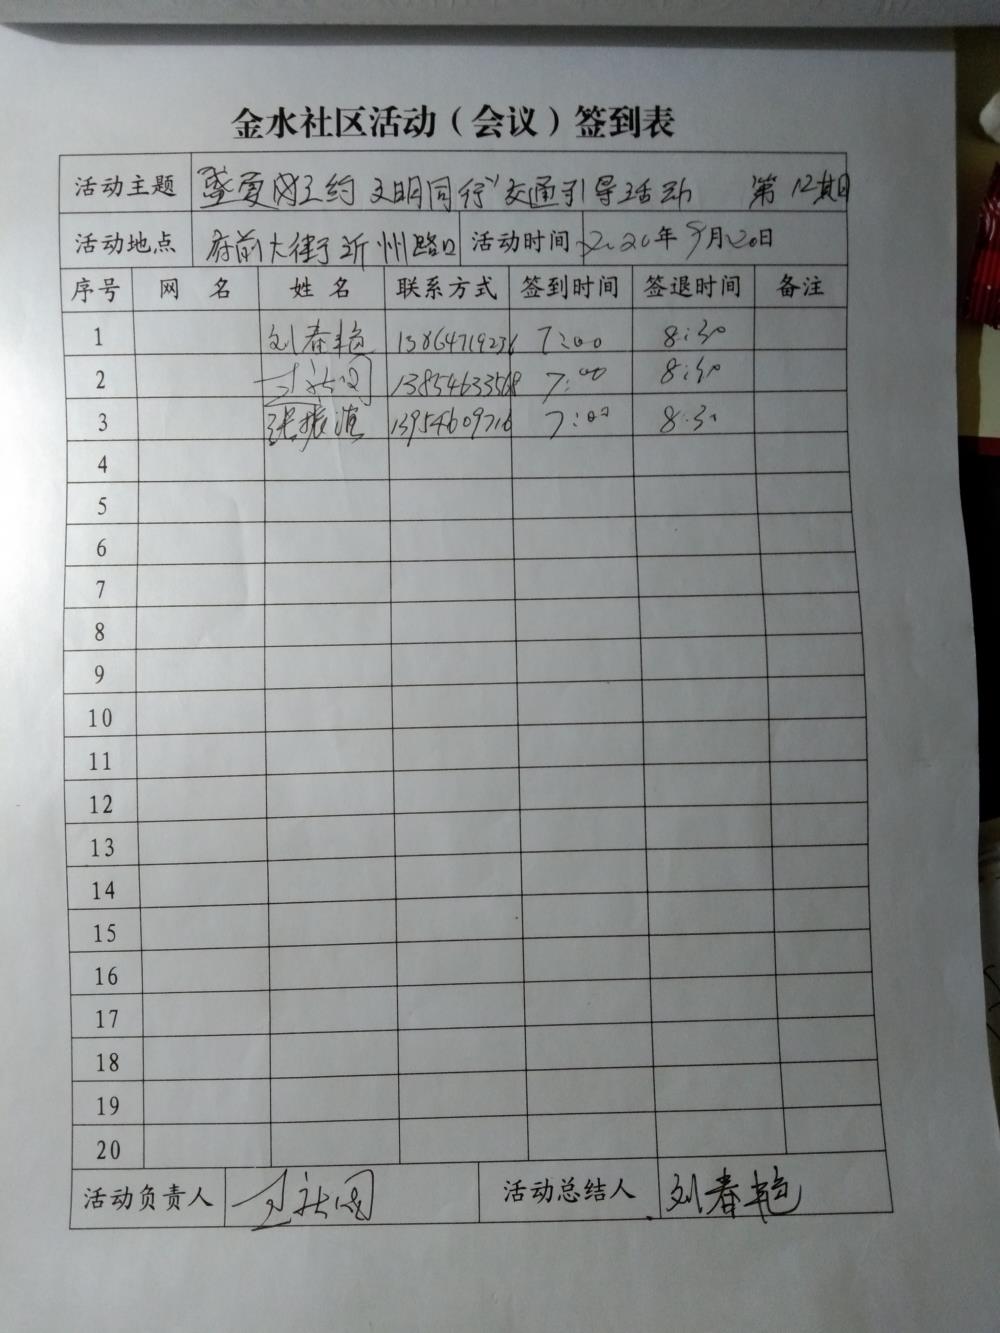 金水社区活动（会议）签到表
活动主题 盛夏的约 文明同行”交通引导活动 第12期
活动地点 府前大街沂州路口 活动时间 2020年9月20日
序号 网名 姓名 联系方式 签到时间 签退时间 备注
1 刘春艳 13864719236 7:00 8:30
2 13854633568 7:00 8:30
3 张振滨 13954609716 7:00 8:30
4
5
6
7
8
9
10
11
12
13
14
15
16
17
18
19
20
活动负责人 活动总结人 刘春艳